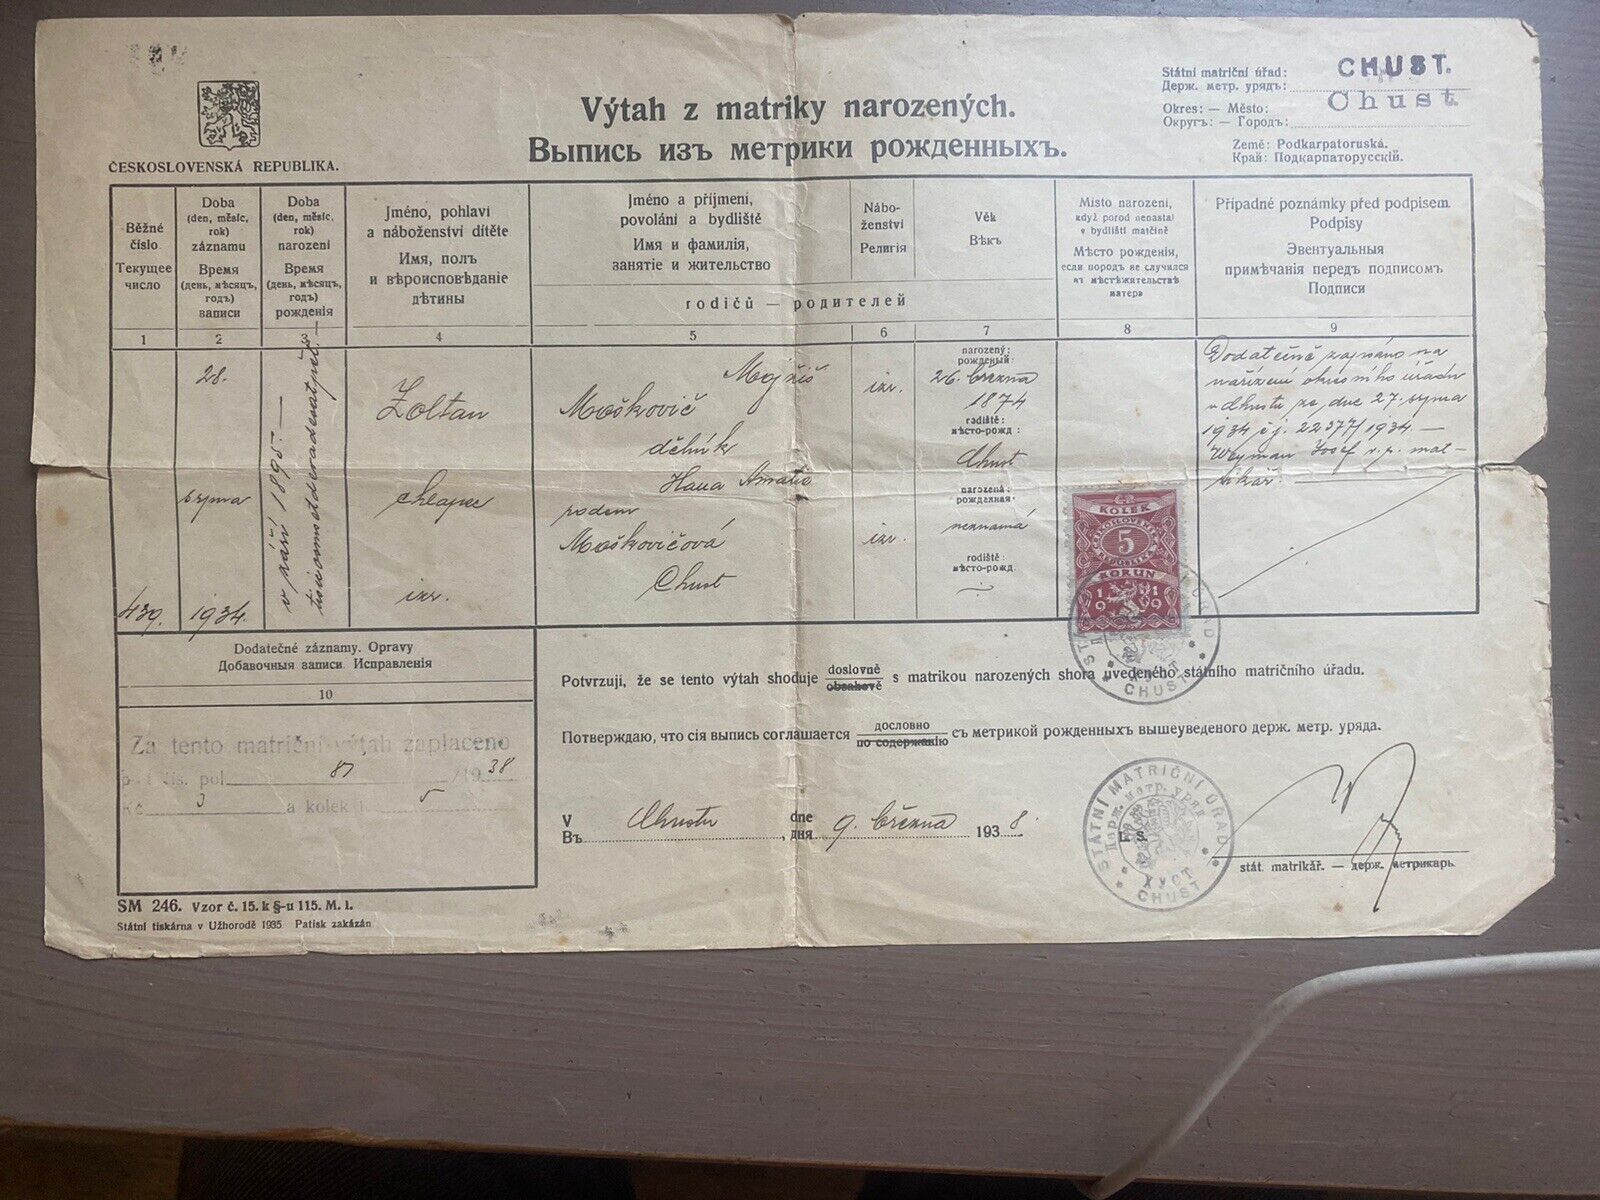 ČESKOSLOVENSKÁ REPUBLIKA.
Výtah z matriky narozených.
Выпись изъ метрики рожденныхъ.
Státní matriční úřad: CHUST.
Держ. метр. урядъ:
Okres: — Město: Chust.
Округъ: — Городъ:
Země: Podkarpatoruská.
Край: Подкарпаторусскій.
Běžné
číslo
Текущее
число
Doba
(den, měsíc,
rok)
záznamu
Время
(день, мѣсяцъ,
годъ)
записи
Doba
(den, měsíc,
rok)
narození
Время
(день, мѣсяцъ,
годъ)
рожденія
Jméno, pohlaví
a náboženství dítěte
Имя, полъ
и вѣроисповѣданіе
дѣтины
Jméno a příjmení,
povolání a bydliště
Имя и фамилія,
занятіе и жительство
Nábo-
ženství
Религія
Věk
Вѣкъ
rodičů — родителей
Místo narození,
když porod nenastal
v bydlišti matčině
Мѣсто рожденія,
если породъ не случился
въ мѣстѣжительствѣ
матери
Případné poznámky před podpisem.
Podpisy
Эвентуальныя
примѣчанія передъ подписомъ
Подписи
1 2 3 4 5 6 7 8 9
439.
28.
srpna
1934.
v září 1895.—
Zoltan
chlapec
izr.
Mojžiš
Moškovič
dělník
Hana Amalie
Moškovičová
Chust
izr.
izr.
narozený:
рожденый:
26. března
1874
rodiště:
мѣсто-рожд:
Chust
narozená:
рожденная:
neznamá
rodiště:
мѣсто-рожд.
Dodatečně zapsáno na
nařízení okresního úřadu
v Chustu ze dne 27. srpna
1934 čj. 22377/1934.—
Weyman Josef v. r. mat-
rikář.
KOLEK
ČESKOSLOVENSKÁ
5
KORUN
1919
STÁTNÍ MATRIČNÍ ÚŘAD
ХУСТ
CHUST
Dodatečné záznamy. Opravy
Добавочныя записи. Исправленія
10
Za tento matriční výtah zaplaceno
čís. pol. 87 /1938
Kč 3 a kolek 5
Potvrzuji, že se tento výtah shoduje doslovně obsahově s matrikou narozených shora uvedeného státního matričního úřadu.
Потверждаю, что сія выпись соглашается дословно по содержанію съ метрикой рожденныхъ вышеуведеного держ. метр. уряда.
V Chustu, dne 9. března 1938.
Въ дня
STÁTNÍ MATRIČNÍ ÚŘAD
Держ. метр. уряд
ХУСТ
CHUST
stát. matrikář. — держ. метрикарь.
SM 246. Vzor č. 15. k §-u 115. M. I.
Státní tiskárna v Užhorodě 1935 Patisk zakázán